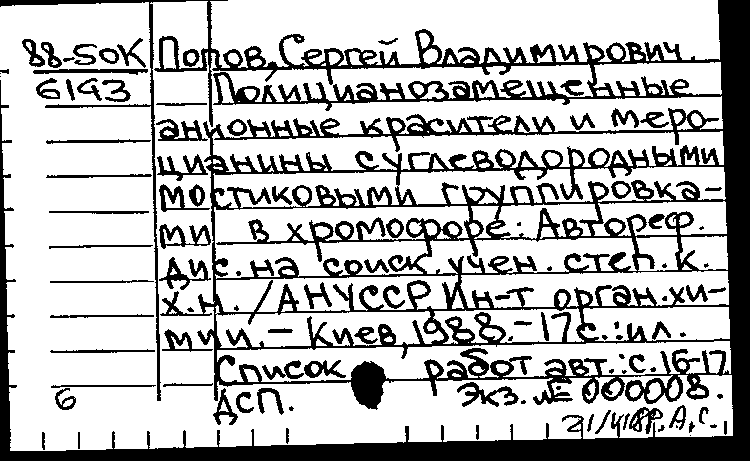 88-50К Попов, Сергей Владимирович.
6193 Полицианозамещенные
анионные красители и меро-
цианины с углеводородными
мостиковыми группировка-
ми в хромофоре: Автореф.
дис. на соиск. учен. степ. к.
х.н. / АН УССР, Ин-т орган. хи-
мии. – Киев, 1988. – 17 с.: ил.
Список работ авт.: с. 16-17
6 ДСП. Экз. № 000008.
А.С.